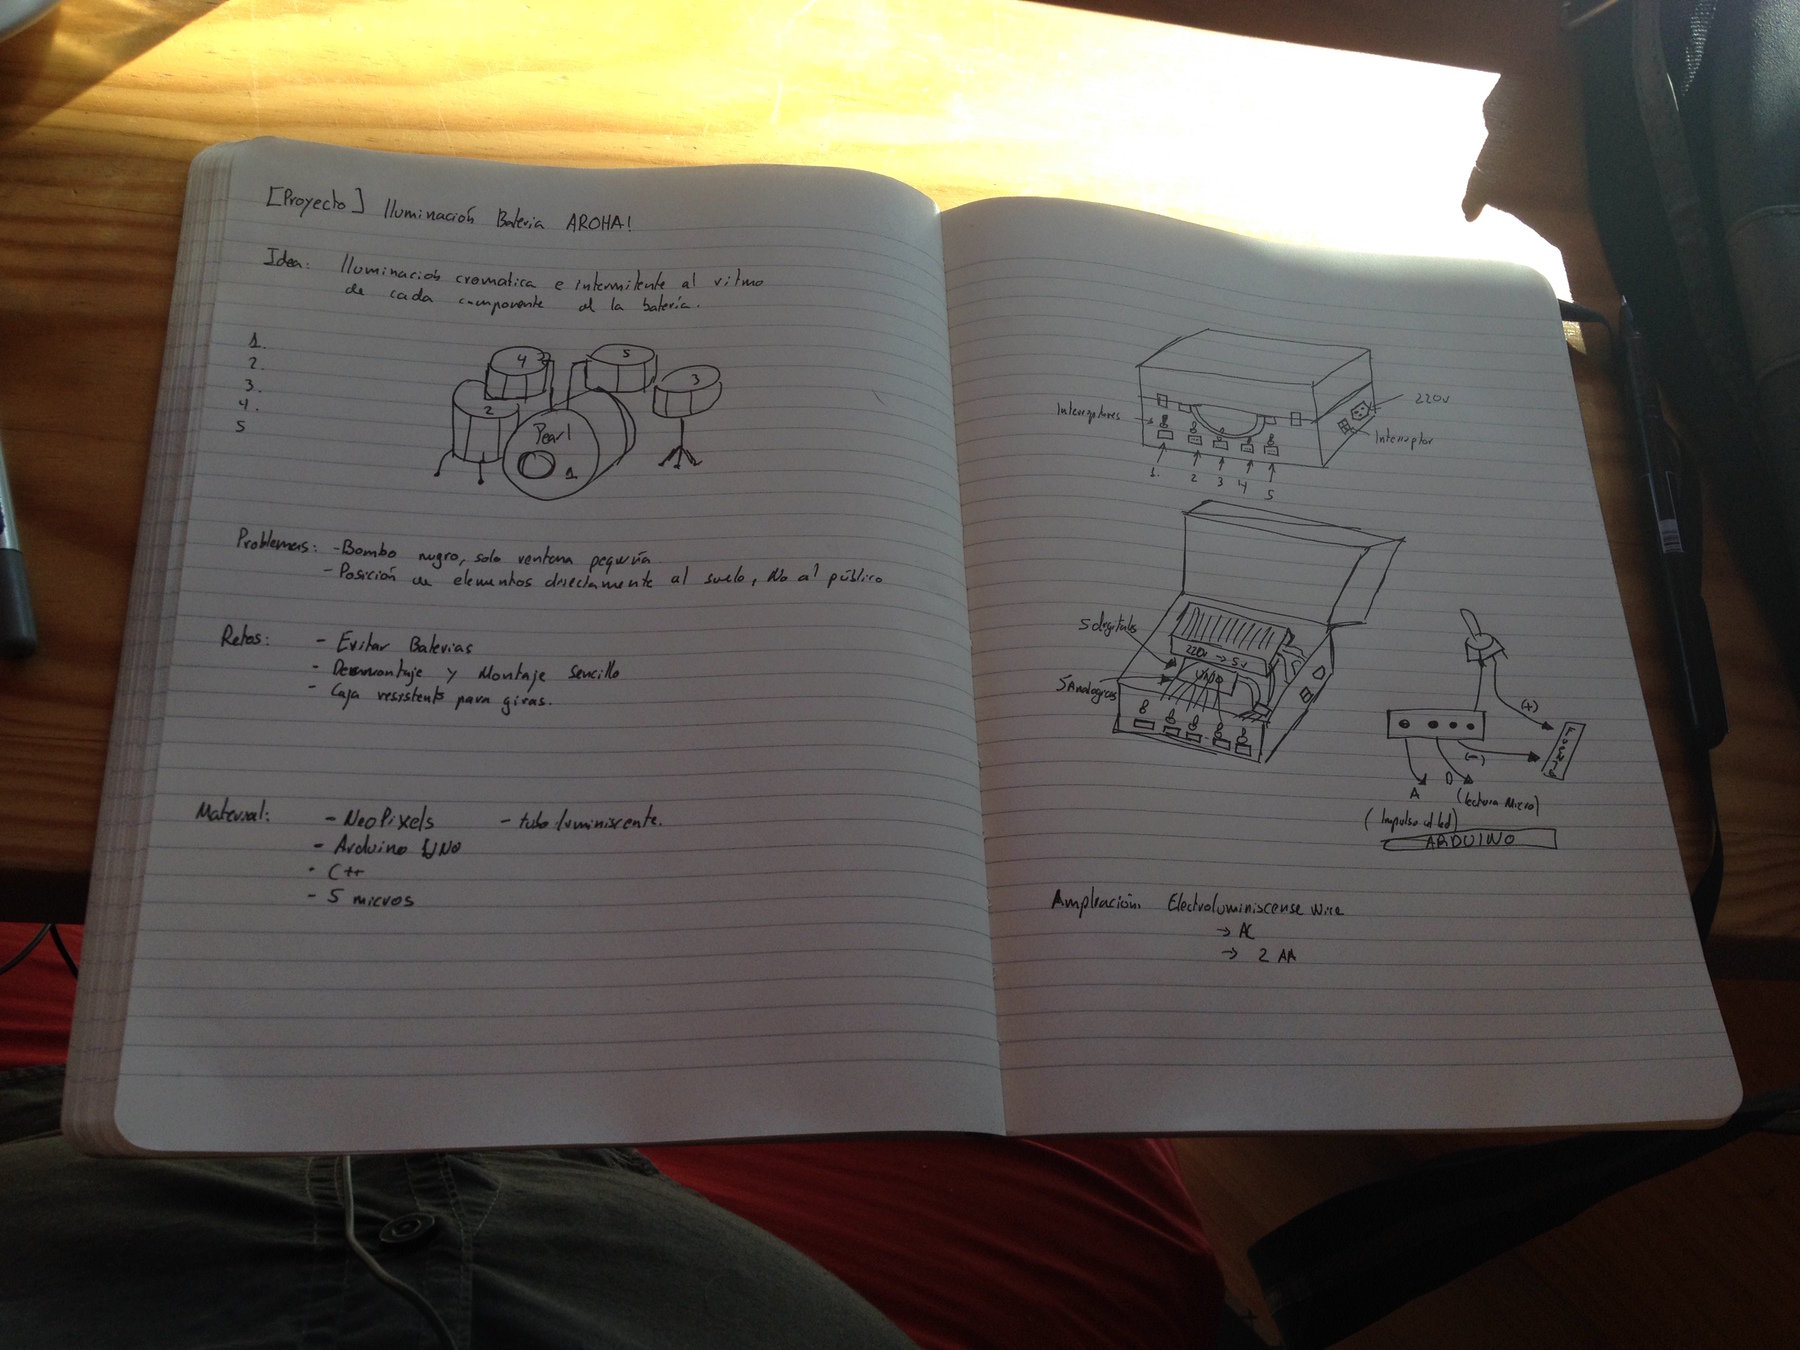 [Proyecto] Iluminación Bateria AROHA!
Idea: Iluminación cromatica e intermitente al ritmo
de cada componente d la batería.
1.
2.
3.
4.
5
4
5
3
2
Pearl
1
Problemas: - Bombo negro, solo ventana pequeña
- Posición de elementos directamente al suelo, No al público
Retos: - Evitar Baterias
- Desmontaje y Montaje Sencillo
- Caja resistente para giras.
Material: - NeoPixels - tubo luminiscente.
- Arduino UNO
- C++
- 5 micros
Interruptores
220v
Interruptor
1. 2 3 4 5
5 digitales
220v → 5v
UNO
5 Analogicas
(+)
Fuente
(-)
A
D
(lectura Micro)
(Impulso al led)
ARDUINO
Ampliación. Electroluminiscense Wire
→ AC
→ 2 AA